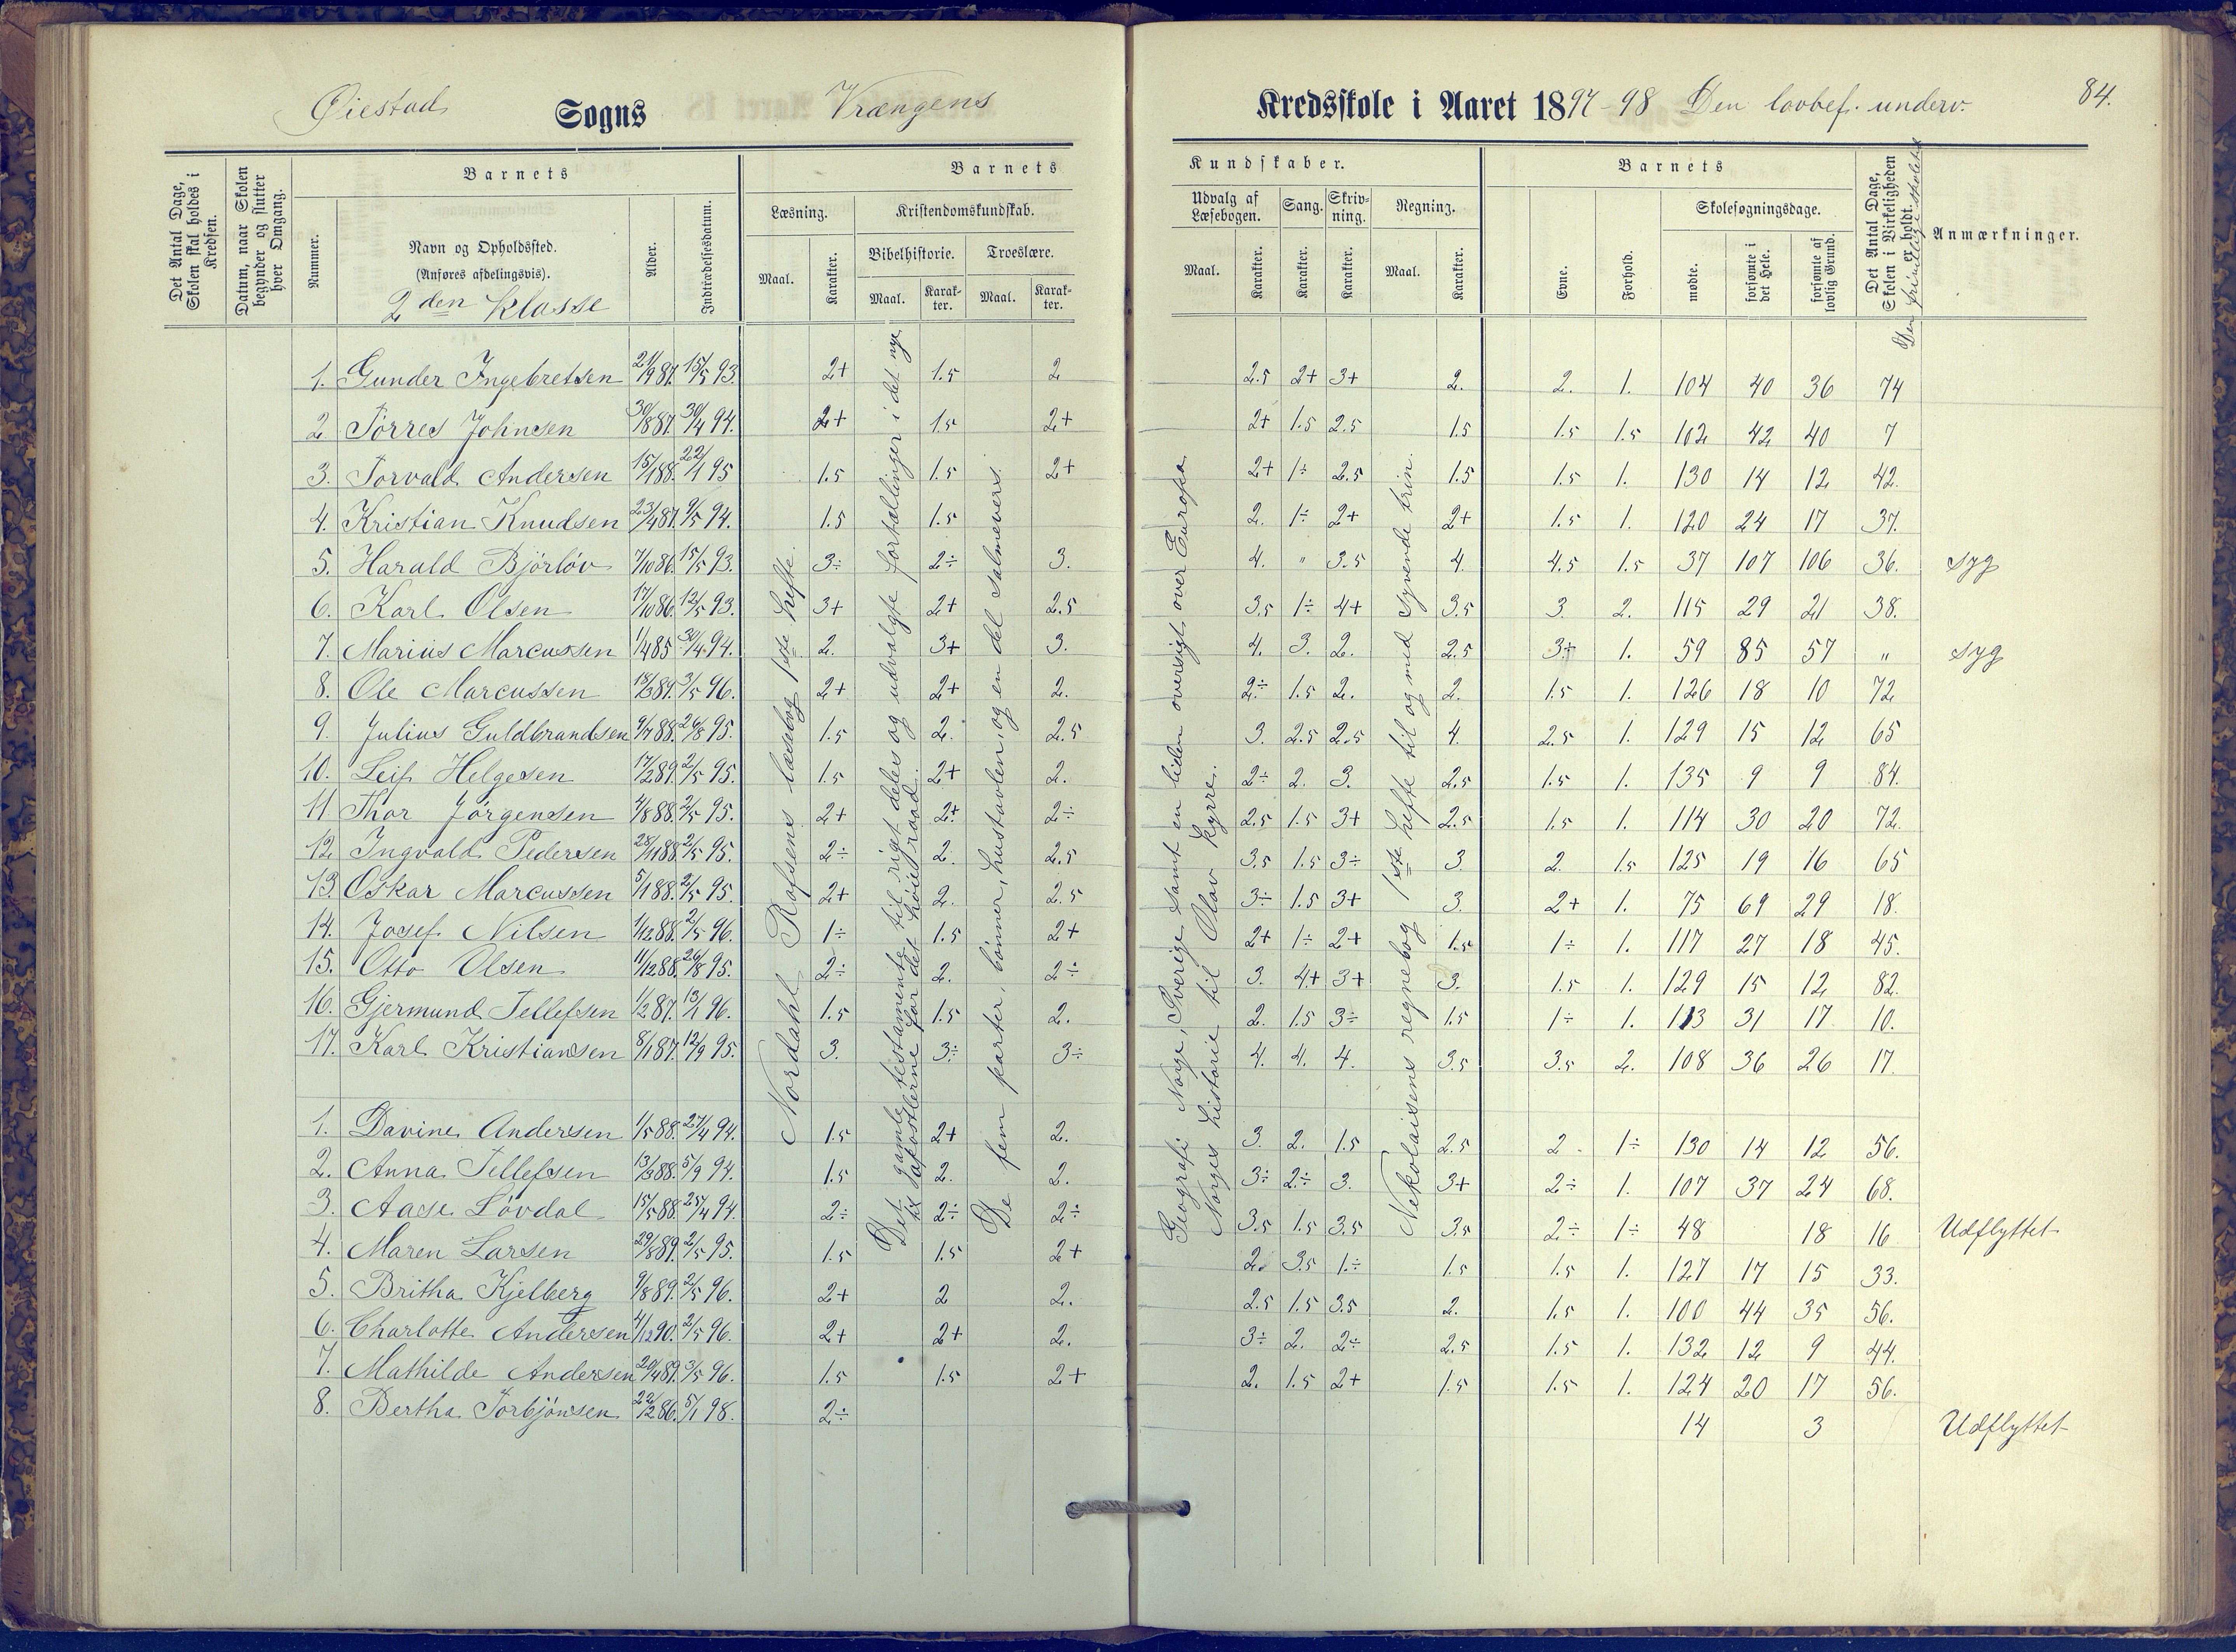 Øiestad Sogns Vrængens Kredsskole i Aaret 1897-98 Den lovbef. underv. 84.
Det Antal Dage, Skolen skal holdes i Kredsen.
Datum, naar Skolen begynder og slutter hver Omgang.
Barnets
Nummer.
Navn og Opholdssted.
(Anføres afdelingsvis).
2den Klasse
Alder.
Indtrædelsesdatum.
Barnets Kundskaber.
Læsning.
Maal. Karakter.
Kristendomskundskab.
Bibelhistorie.
Maal. Karakter.
Troeslære.
Maal. Karakter.
Udvalg af Læsebogen.
Maal. Karakter.
Sang.
Karakter.
Skrivning.
Karakter.
Regning.
Maal. Karakter.
Barnets
Evne.
Forhold.
Skolesøgningsdage.
mødte.
forsømte i det Hele.
forsømte af lovlig Grund.
Det Antal Dage, Skolen i Virkeligheden er holdt.
Den frivillige skoletid
Anmærkninger.
Nordahl Rofsens læsebog 1ste hefte.
Det gamle testamente til riget deles og udvalgte fortællinger i det nye
til apostlerne for det høie raad.
De fem parter, bønner, hustavlen, og en del salmevers.
Geografi Norge, Sverige samt en liden oversigt over Europa.
Norges historie til Olav Kyrre.
Nikolaisens regnebog 1ste hefte til og med syvende trin.
1. Gunder Ingebretsen 21/9 87. 15/5 93. 2+ 1.5 2 2.5 2+ 3+ 2. 2. 1. 104 40 36 74
2. Torres Johnsen 30/8 87. 30/4 94. 2+ 1.5 2+ 2+ 1.5 2.5 1.5 1.5 1.5 102 42 40 7
3. Torvald Andersen 15/1 88. 22/1 95 1.5 1.5 2+ 2+ 1÷ 2.5 1.5 1.5 1. 130 14 12 42.
4. Kristian Knudsen 23/4 87. 9/5 94. 1.5 1.5 2. 1÷ 2+ 2+ 1.5 1. 120 24 17 37.
5. Harald Bjørløv 7/10 86. 15/5 93. 3÷ 2÷ 3. 4. " 3.5 4. 4.5 1.5 37 107 106 36. syg
6. Karl Olsen 17/10 86. 12/5 93. 3+ 2+ 2.5 3.5 1÷ 4+ 3.5 3. 2. 115 29 21 38.
7. Marius Marcussen 1/4 85 30/4 94. 2. 3+ 3. 4. 3. 2. 2.5 3÷ 1. 59 85 57 " syg
8. Ole Marcussen 18/3 89. 3/5 96. 2+ 2+ 2. 2÷ 1.5 2. 2. 1.5 1. 126 18 10 72
9. Julius Guldbrandsen 9/7 88. 26/8 95. 1.5 2. 2.5 3. 2.5 2.5 4. 2.5 1. 129 15 12 65
10. Leif Helgesen 17/2 89. 2/5 95. 1.5 2+ 2. 2÷ 2. 3. 2.5 1.5 1. 135 9 9 84.
11 Thor Jørgensen 4/8 88. 2/5 95. 2+ 2+ 2÷ 2.5 1.5 3+ 2.5 1.5 1. 114 30 20 72.
12. Ingvald Pedersen 28/11 88. 2/5 95. 2÷ 2. 2.5 3.5 1.5 3÷ 3 2. 1.5 125 19 16 65
13. Oskar Marcussen 5/1 88. 2/5 95. 2+ 2. 2.5 3÷ 1.5 3+ 3. 2+ 1. 75 69 29 18.
14. Josef Nilsen 1/12 88. 2/5 96. 1÷ 1.5 2+ 2+ 1÷ 2+ 1.5 1÷ 1. 117 27 18 45.
15. Otto Olsen 11/12 88. 26/8 95. 2÷ 2. 2÷ 3. 4+ 3+ 3. 1.5 1. 129 15 12 82.
16. Gjermund Tellefsen 1/2 87. 13/1 96. 1.5 1.5 2. 2. 1.5 3÷ 1.5 1÷ 1. 113 31 17 10.
17. Karl Kristiansen 8/1 87. 12/9 95. 3. 3÷ 3÷ 4. 4. 4. 3.5 3.5 2. 108 36 26 17.
1. Davine Andersen 1/5 88. 27/4 94. 1.5 2+ 2. 3. 2. 1.5 2.5 2 1÷ 130 14 12 56.
2. Anna Tellefsen 13/3 88. 5/9 94. 1.5 2. 2. 3÷ 2÷ 3. 3+ 2÷ 1. 107 37 24 68.
3. Aase Løvdal 15/5 88. 25/4 94. 2÷ 2÷ 2÷ 3.5 1.5 3.5 3.5 2÷ 1÷ 48 18 16 Udflyttet
4. Maren Larsen 29/8 89. 2/5 95. 1.5 1.5 2+ 2. 3.5 1÷ 1.5 1.5 1. 127 17 15 33.
5. Britha Kjelberg 9/8 89. 2/5 96. 2+ 2 2. 2.5 1.5 3.5 2. 1.5 1. 100 44 35 56.
6. Charlotte Andersen 4/12 90. 2/5 96. 2+ 2+ 2. 3÷ 2. 2÷ 2.5 1.5 1. 132 12 9 44.
7. Mathilde Andersen 20/4 89. 3/5 96. 1.5 1.5 2+ 2. 1.5 2+ 1.5 1.5 1. 124 20 17 56.
8. Bertha Torbjønsen 22/12 86. 5/1 98. 2÷ 14 3 Udflyttet